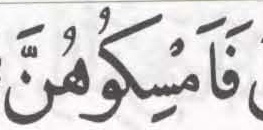 فَاَمْسِكُوهُنَّ